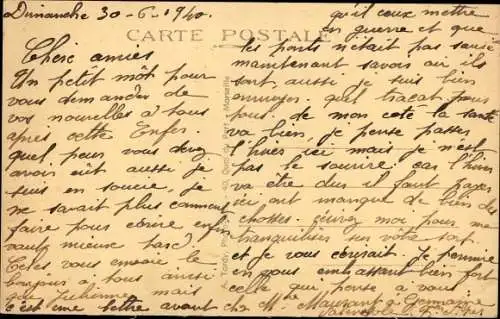 Dimanche 30-6-1940.
CARTE POSTALE
Cheie amies
Un petit môt pour
vous demander de
vos nouvelles a tous
après cette Enfer.
quel peur vous devez
avoir eut aussi je
suis en soucie, je
ne savait plus comment
faire pour écrire enfin
vaulx mieux tard.
vous envoie le
bonjour a tous ainsi
que Julienne mais
c'est une lettre avant
qu'il ceux mettre
en guerre et que
les ponts n'était pas sauté
maintenant savoir où ils
sont, aussi je suis bien
ennuyer. quel tracat pour
vous. de mon coté la santé
va bien, je pense passer
l'hiver ici mais je n'est
pas le sourire car l'hiver
va être dur il faut payer
ici ont manque de bien des
chosses. écrivez moi pour me
tranquiliser sur vôtre sort
et je vous écrirait. Je termine
en vous embrassant bien fort
celle qui pense à vous
che Mme Germaine
Marseille